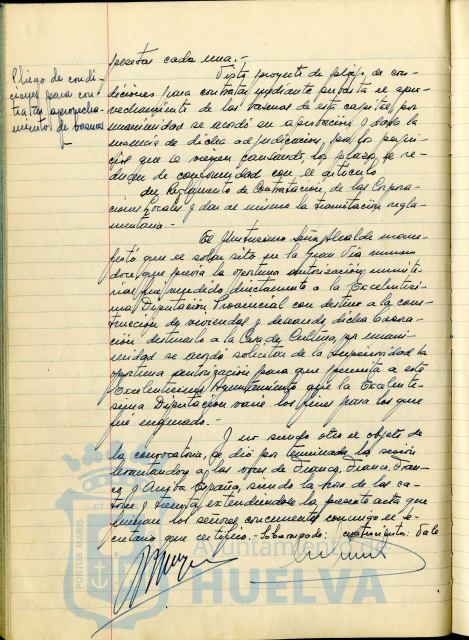 pesetas cada una.-
Pliego de condi-
ciones para con-
tratar aprovecha-
miento de basuras
Visto proyecto de pliego de con-
diciones para contratar mediante subasta el apro-
vechamiento de las basuras de esta capital, por
unanimidad se acordó su aprobación y dada la
urgencia de dicha adjudicación, por los perjui-
cios que se vienen causando, los plazos se re-
duzcan de conformidad con el artículo
del Reglamento de Contratación de las Corpora-
ciones Locales y dar al mismo la tramitación regla-
mentaria.-
El Ilustrísimo Señor Alcalde mani-
festó que el solar sito en la Gran Vía número
doce que previa la oportuna autorización ministe-
rial fué vendido directamente a la Excelentísi-
ma Diputación Provincial con destino a la cons-
trucción de viviendas y deseando dicha Corpora-
ción destinarlo a Casa de Cultura, por unani-
midad se acordó solicitar de la Superioridad la
oportuna autorización para que permita a este
Excelentísimo Ayuntamiento que la Excelentí-
sima Diputación varíe los fines para los que
fué enajenado.-
Y no siendo otro el objeto de
la convocatoria, se dió por terminada la sesión
levantándose a las voces de Franco, Franco, Fran-
co y Arriba España, siendo la hora de las ca-
torce y treinta, extendiéndose la presente acta que
firman los señores concurrentes conmigo el se-
cretario que certifico.- Vale
Ayuntamiento de
HUELVA
PORTUS MARIS